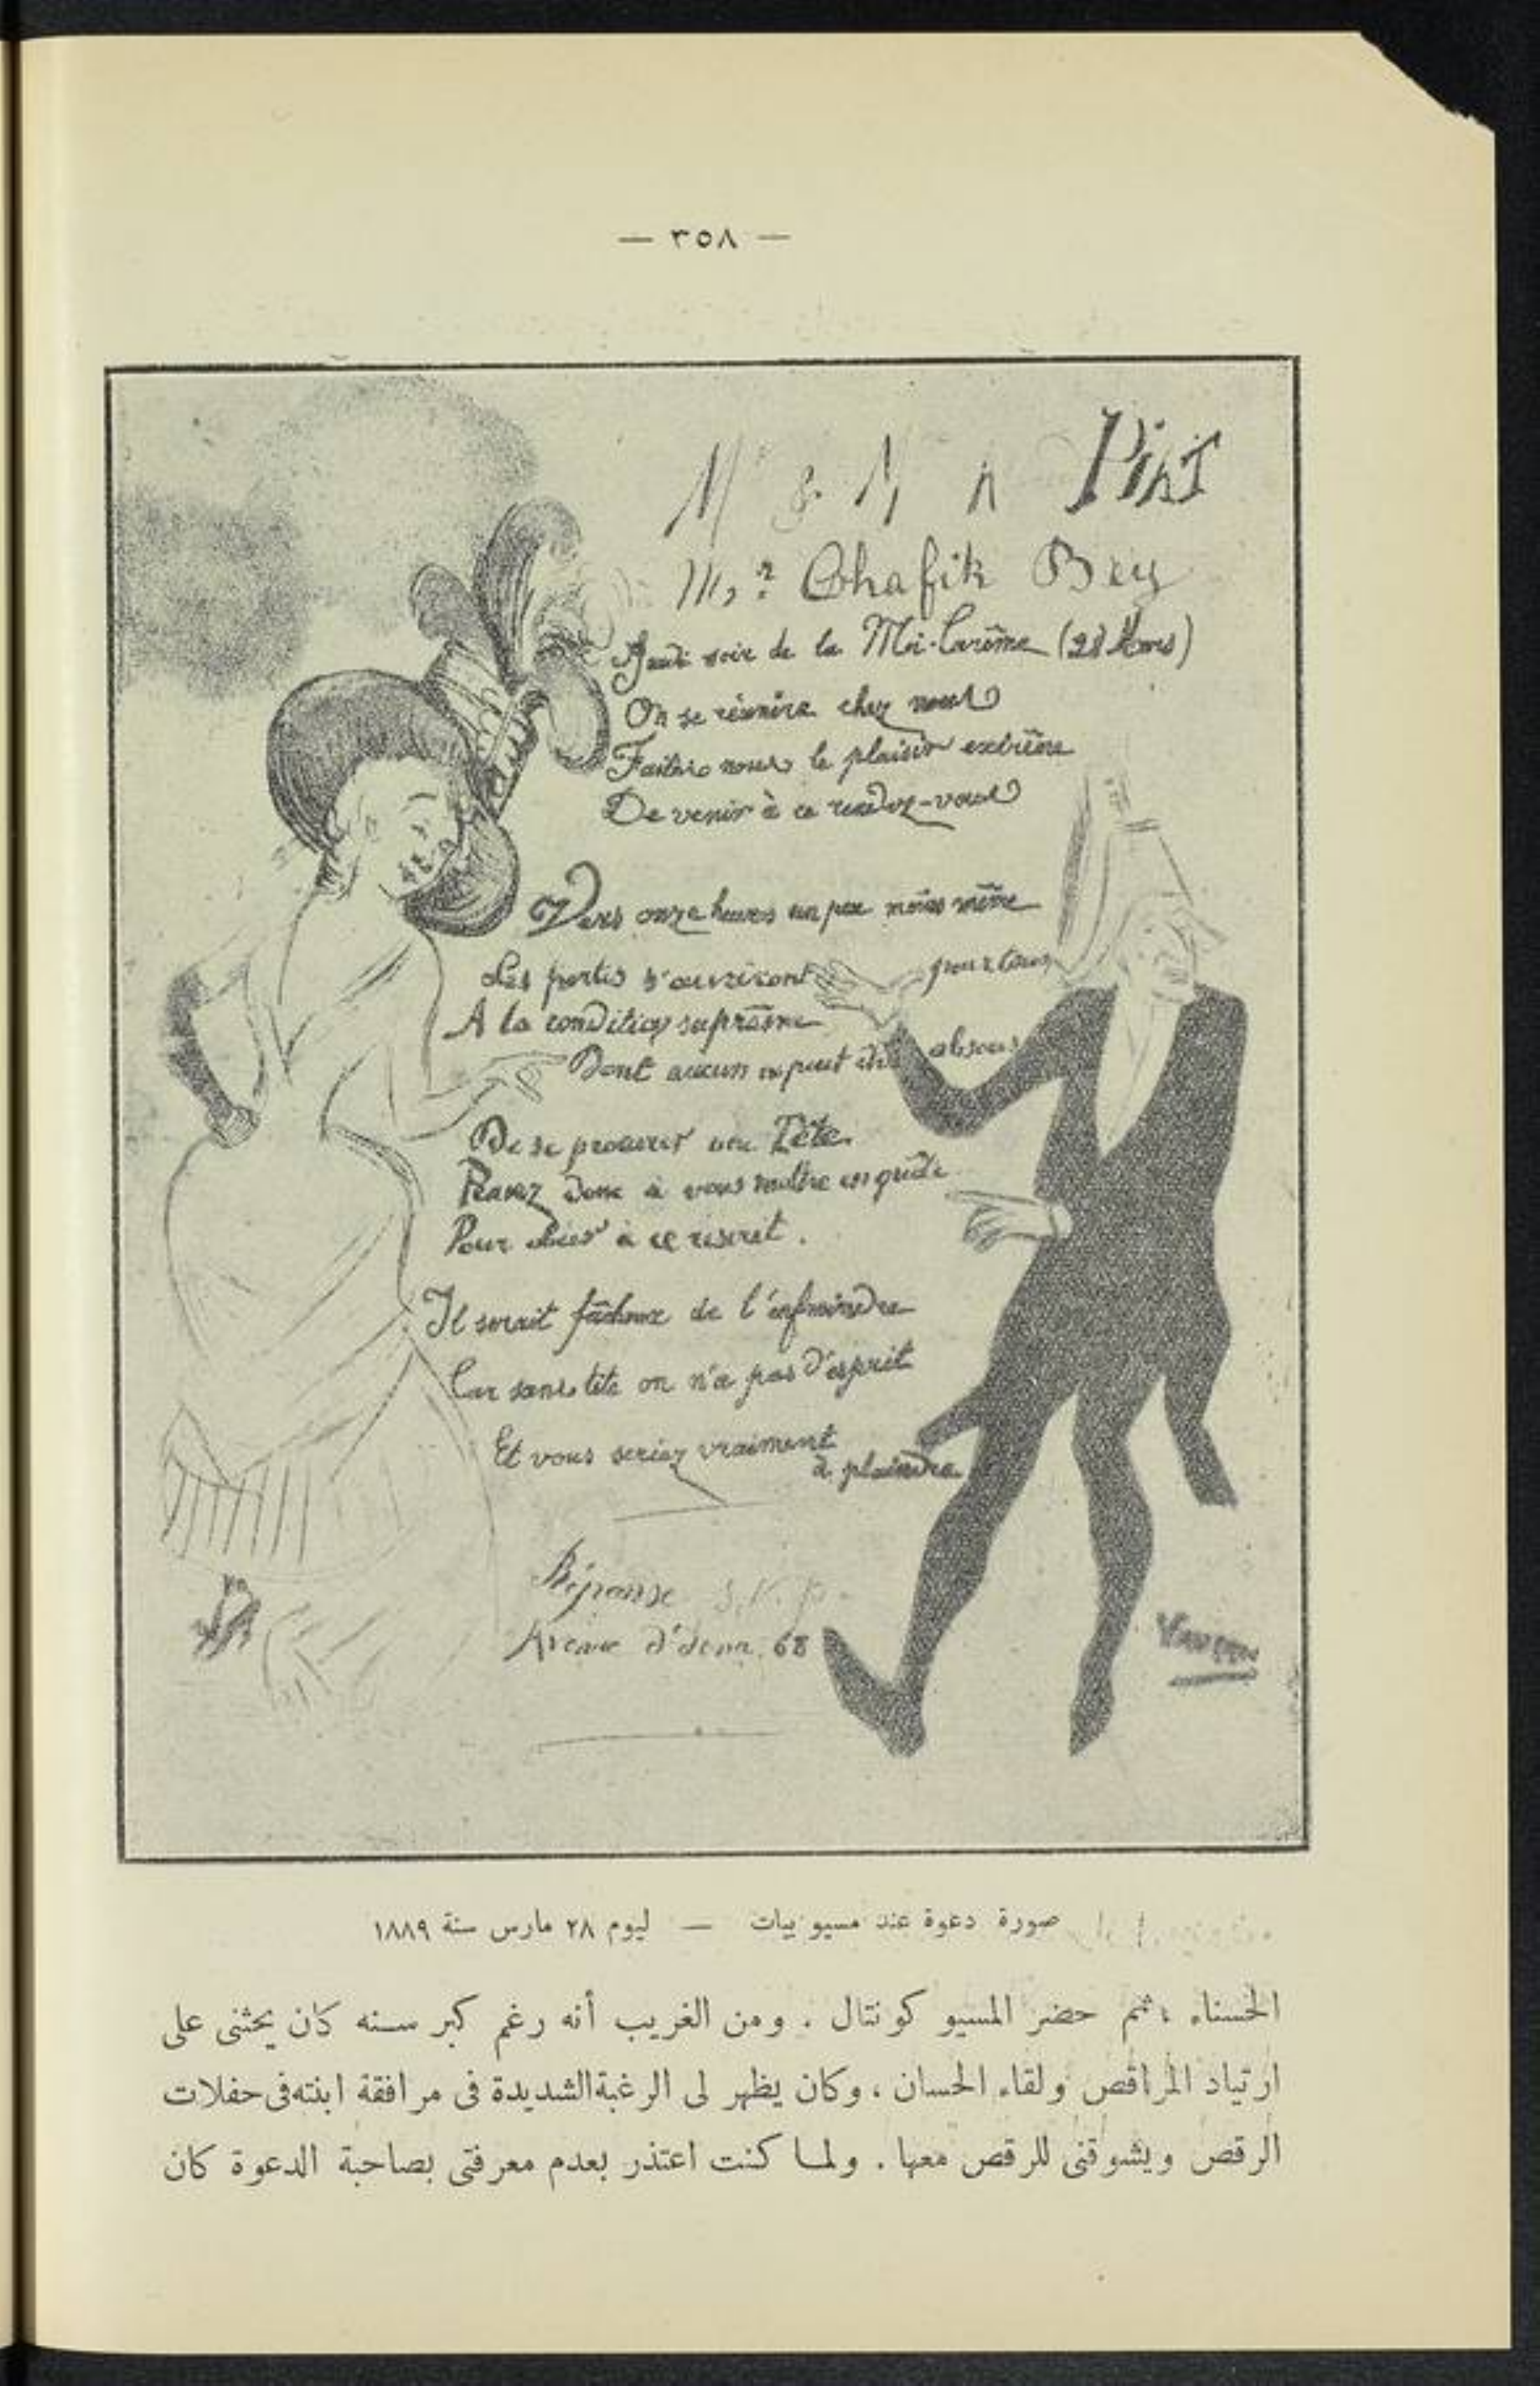 — ٣٥٨ —
M & M Piat
Mr Chafik Bey
Jeudi soir de la Mi-Carême (28 Mars)
On se réunira chez nous
Faites nous le plaisir extrême
De venir à ce rendez-vous
Vers onze heures un peu moins même
Les portes s'ouvriront pour tous
A la condition suprême
Dont aucun ne peut être absous
De se procurer une Tête.
Pour obéir à ce
Il serait fâcheux de l'enfreindre
Car sans tête on n'a pas d'esprit
Et vous seriez vraiment
à plaindre
Réponse S.V.P.
Avenue d'Iena. 68
صورة دعوة عند مسيو بيات — ليوم ٢٨ مارس سنة ١٨٨٩
الحسناء ؛ ثم حضر المسيو كونتال . ومن الغريب أنه رغم كبر سنه كان يحثنى على
ارتياد المراقص ولقاء الحسان ، وكان يظهر لى الرغبة الشديدة فى مرافقة ابنته فى حفلات
الرقص ويشوقنى للرقص معها . ولما كنت اعتذر بعدم معرفتى بصاحبة الدعوة كان